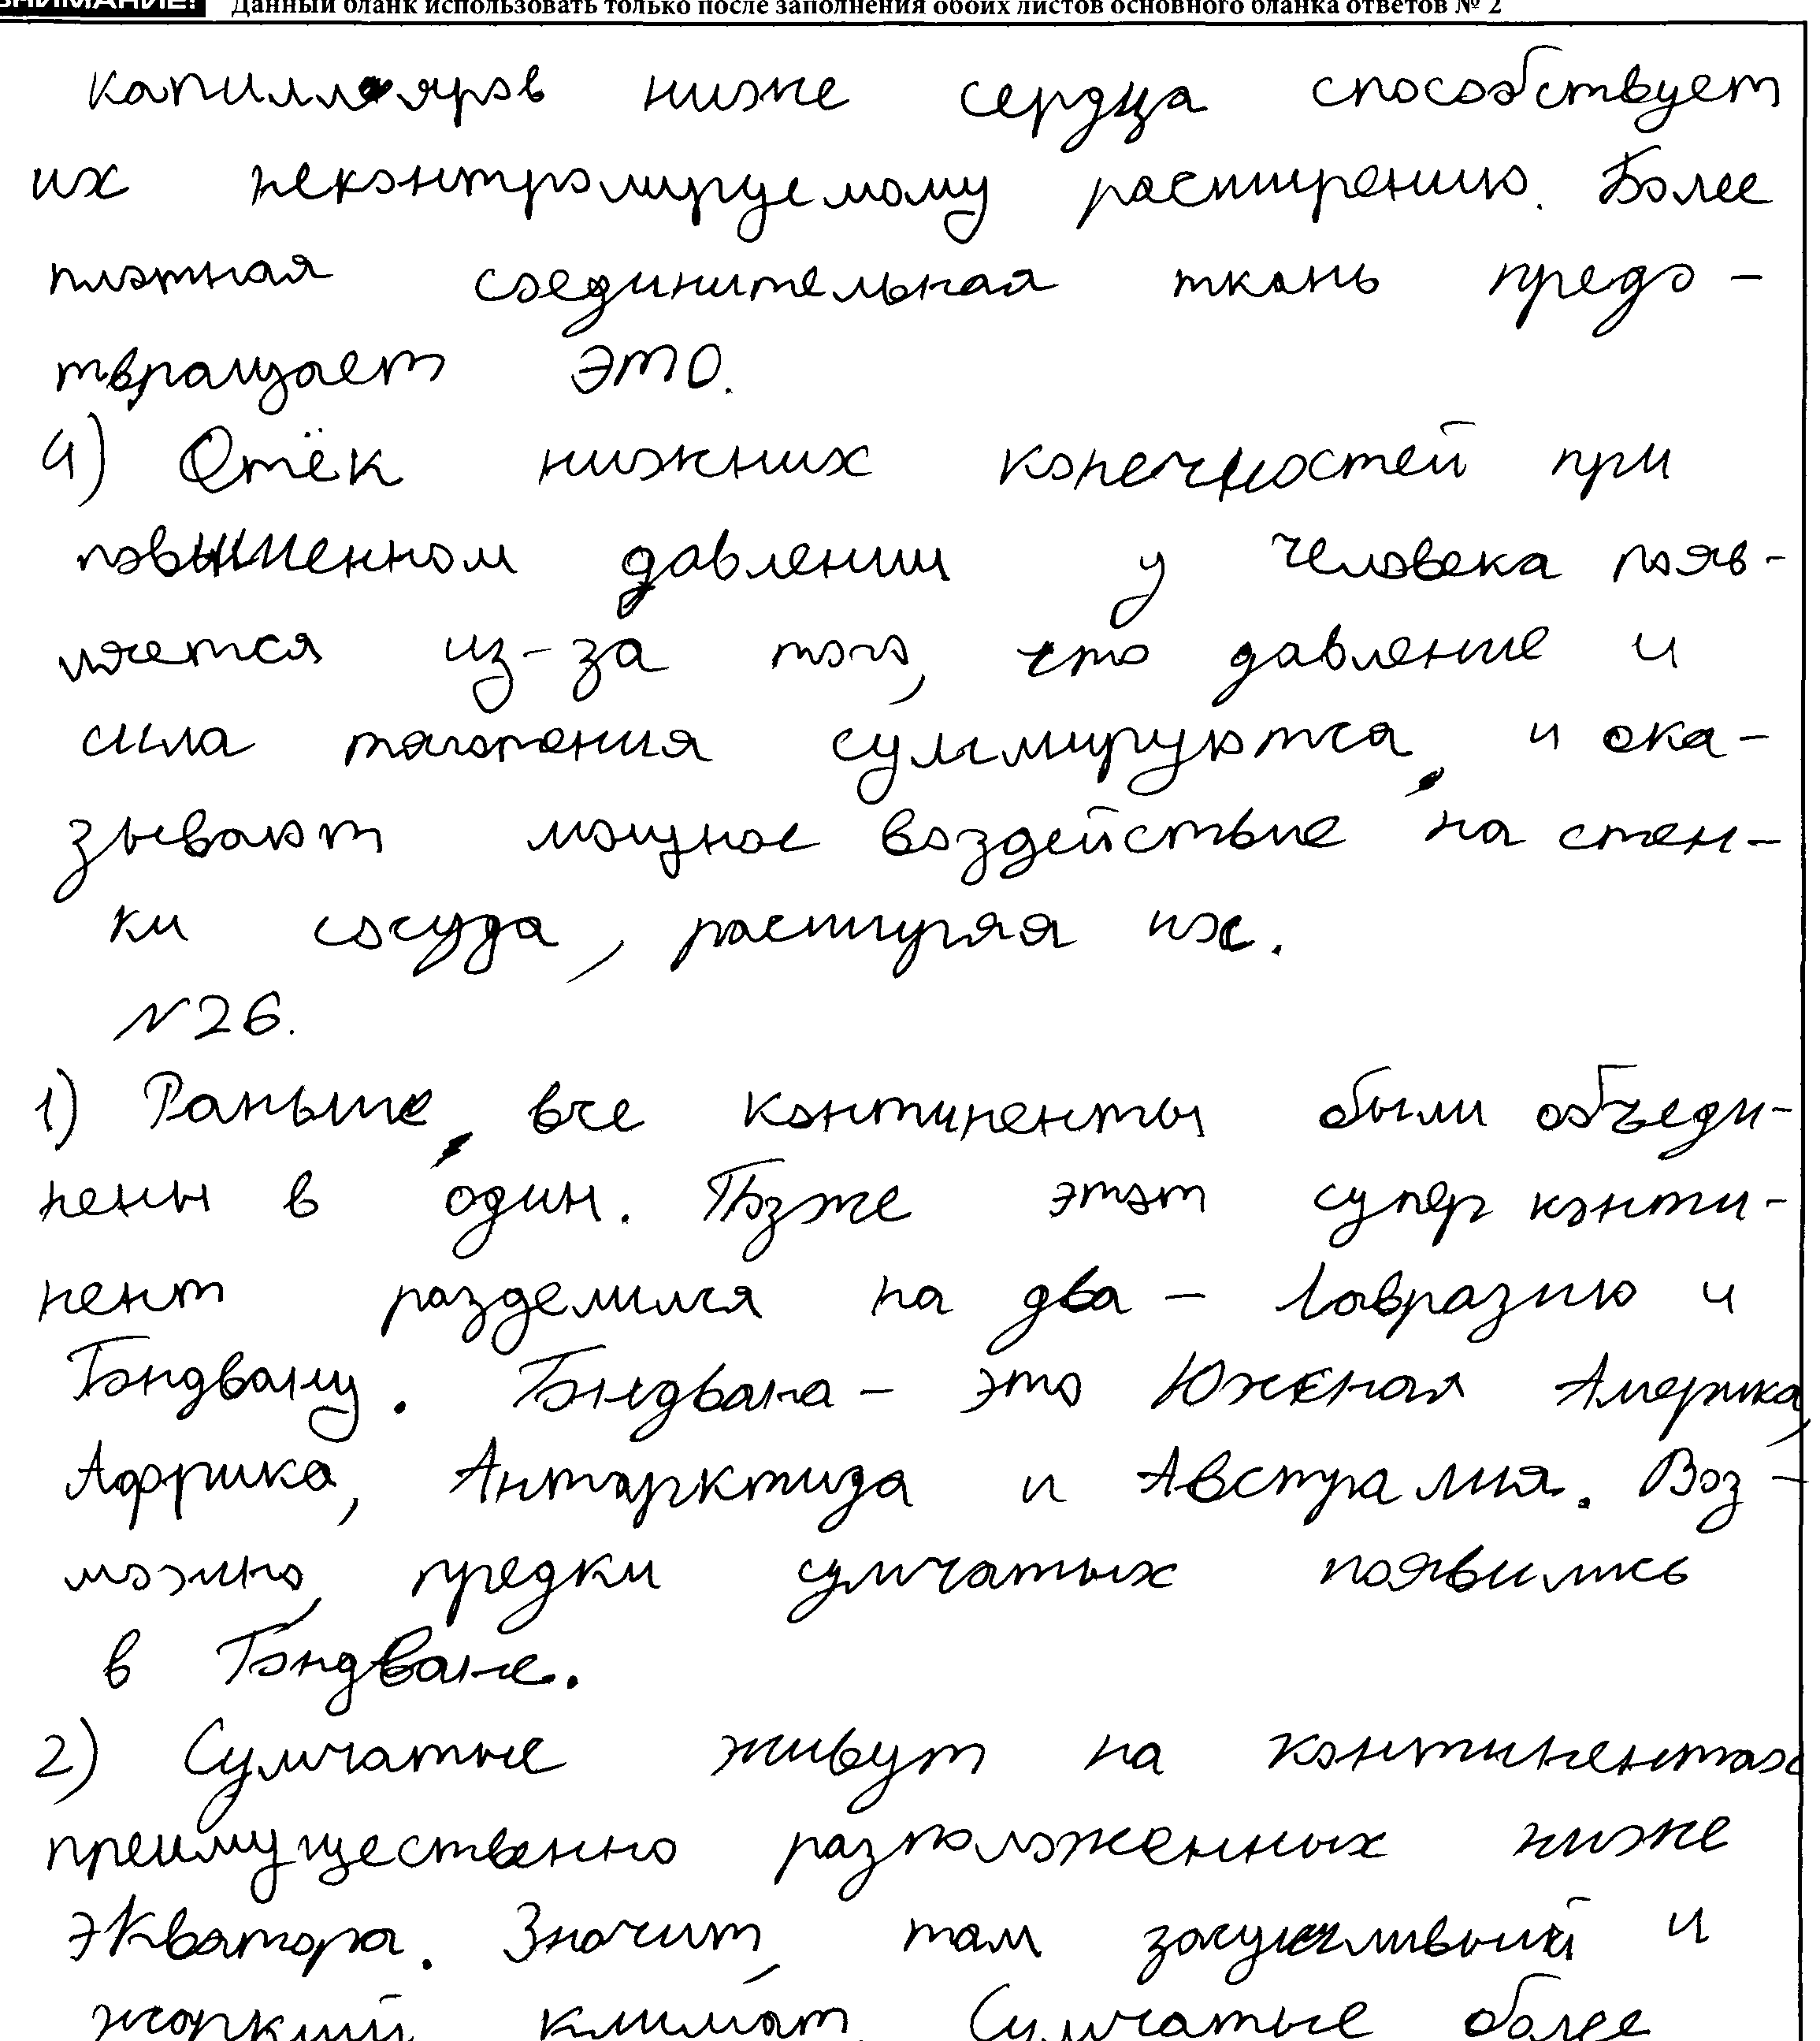 ВНИМАНИЕ! Данный бланк использовать только после заполнения обоих листов основного бланка ответов № 2
капилляров ниже сердца способствует
их неконтролируемому расширению. Более
плотная соединительная ткань предо-
твращает это.
4) Отёк нижних конечностей при
повышенном давлении у человека появ-
ляется из-за того, что давление и
сила тяготения суммируются и ока-
зывают мощное воздействие на стен-
ки сосуда, растягивая их.
№26.
1) Раньше все континенты были объеди-
нены в один. Позже этот супер конти-
нент разделился на два – Лавразию и
Гондвану. Гондвана – это Южная Америка,
Африка, Антарктида и Австралия. Воз-
можно, предки сумчатых появились
в Гондване.
2) Сумчатые живут на континентах
преимущественно разположенных ниже
экватора. Значит, там засушливый и
жаркий климат. Сумчатые более